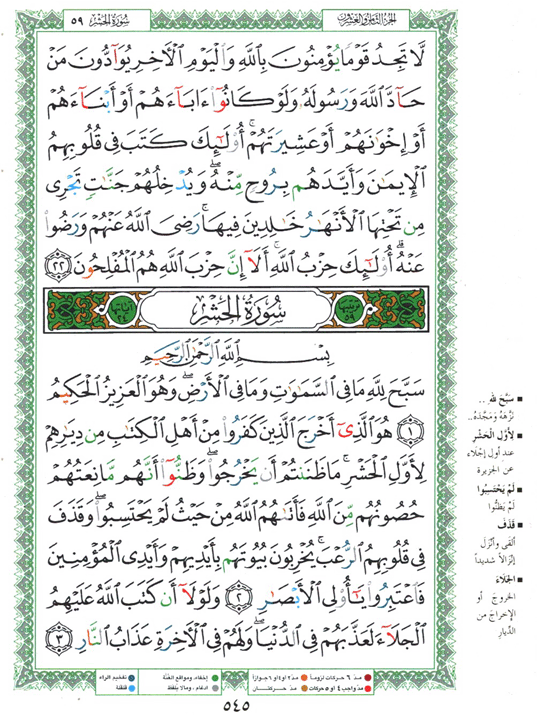 سُورَةُ الحَشْرِ ٥٩
الجزء الثامن والعشرون
لَّا تَجِدُ قَوْمًا يُؤْمِنُونَ بِاللَّهِ وَالْيَوْمِ الْآخِرِ يُوَادُّونَ مَنْ
حَادَّ اللَّهَ وَرَسُولَهُ وَلَوْ كَانُوا ءَابَاءَهُمْ أَوْ أَبْنَاءَهُمْ
أَوْ إِخْوَٰنَهُمْ أَوْ عَشِيرَتَهُمْ ۚ أُولَٰئِكَ كَتَبَ فِي قُلُوبِهِمُ
الْإِيمَٰنَ وَأَيَّدَهُم بِرُوحٍ مِّنْهُ ۖ وَيُدْخِلُهُمْ جَنَّٰتٍ تَجْرِي
مِن تَحْتِهَا الْأَنْهَٰرُ خَٰلِدِينَ فِيهَا ۚ رَضِيَ اللَّهُ عَنْهُمْ وَرَضُوا
عَنْهُ ۚ أُولَٰئِكَ حِزْبُ اللَّهِ ۚ أَلَا إِنَّ حِزْبَ اللَّهِ هُمُ الْمُفْلِحُونَ ٢٢
سُورَةُ الحَشْرِ
بِسْمِ اللَّهِ الرَّحْمَٰنِ الرَّحِيمِ
سَبَّحَ لِلَّهِ مَا فِي السَّمَٰوَٰتِ وَمَا فِي الْأَرْضِ ۖ وَهُوَ الْعَزِيزُ الْحَكِيمُ
١ هُوَ الَّذِي أَخْرَجَ الَّذِينَ كَفَرُوا مِنْ أَهْلِ الْكِتَٰبِ مِن دِيَٰرِهِمْ
لِأَوَّلِ الْحَشْرِ ۚ مَا ظَنَنتُمْ أَن يَخْرُجُوا ۖ وَظَنُّوا أَنَّهُم مَّانِعَتُهُمْ
حُصُونُهُم مِّنَ اللَّهِ فَأَتَىٰهُمُ اللَّهُ مِنْ حَيْثُ لَمْ يَحْتَسِبُوا ۖ وَقَذَفَ
فِي قُلُوبِهِمُ الرُّعْبَ ۚ يُخْرِبُونَ بُيُوتَهُم بِأَيْدِيهِمْ وَأَيْدِي الْمُؤْمِنِينَ
فَاعْتَبِرُوا يَٰأُولِي الْأَبْصَٰرِ ٢ وَلَوْلَا أَن كَتَبَ اللَّهُ عَلَيْهِمُ
الْجَلَاءَ لَعَذَّبَهُمْ فِي الدُّنْيَا ۖ وَلَهُمْ فِي الْآخِرَةِ عَذَابُ النَّارِ ٣
سَبَّحَ لله ..
نزّهه ومجّده..
لأوّل الحَشْر
عند أول إجلاء
عن الجزيرة
لَمْ يَحْتَسِبُوا
لم يظنّوا
قَذَفَ
ألقى وأنزل
إنزالاً شديداً
الجَلاءَ
الخروج أو
الإخراج من
الديار
مدّ ٦ حركات لزوماً
مدّ ٢ أو ٤ أو ٦ جوازاً
إخفاء، ومواقع الغُنَّة
تفخيم الراء
مدّ واجب ٤ أو ٥ حركات
مدّ حركتان
ادغام، وما لا يُلفَظ
قلقلة
٥٤٥